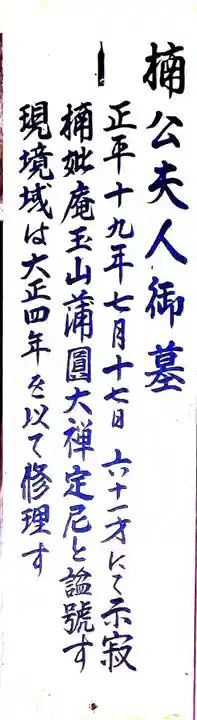 楠公夫人御墓
正平十九年七月十七日 六十一才にて示寂
楠妣庵玉山蒲圓大禅定尼と諡號す
現境域は大正四年を以て修理す